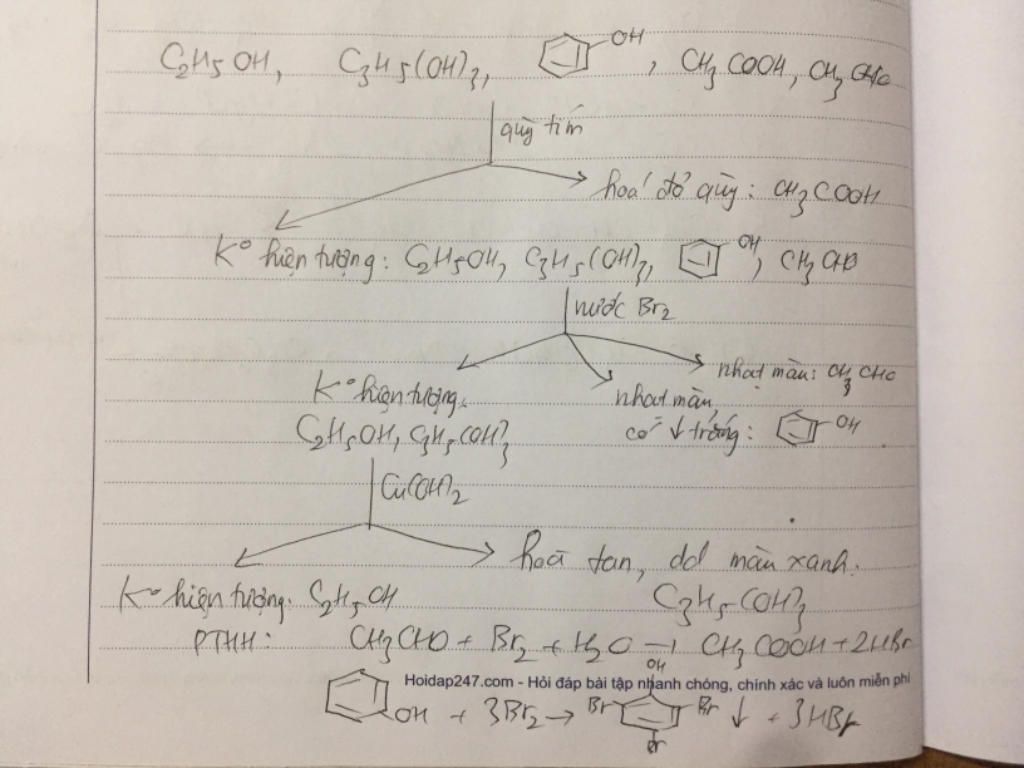 C2H5OH, C3H5(OH)3, OH, CH3COOH, CH3CHO
quỳ tím
hoá đỏ quỳ: CH3COOH
K° hiện tượng: C2H5OH, C3H5(OH)3, OH, CH3CHO
nước Br2
nhạt màu: CH3CHO
K° hiện tượng:
nhạt màu,
C2H5OH, C3H5(OH)3
có ↓ trắng: OH
Cu(OH)2
hoà tan, dd màu xanh.
K° hiện tượng: C2H5OH
C3H5(OH)3
PTHH: CH3CHO + Br2 + H2O → CH3COOH + 2HBr
Hoidap247.com - Hỏi đáp bài tập nhanh chóng, chính xác và luôn miễn phí
OH + 3Br2 → Br OH Br Br ↓ + 3HBr